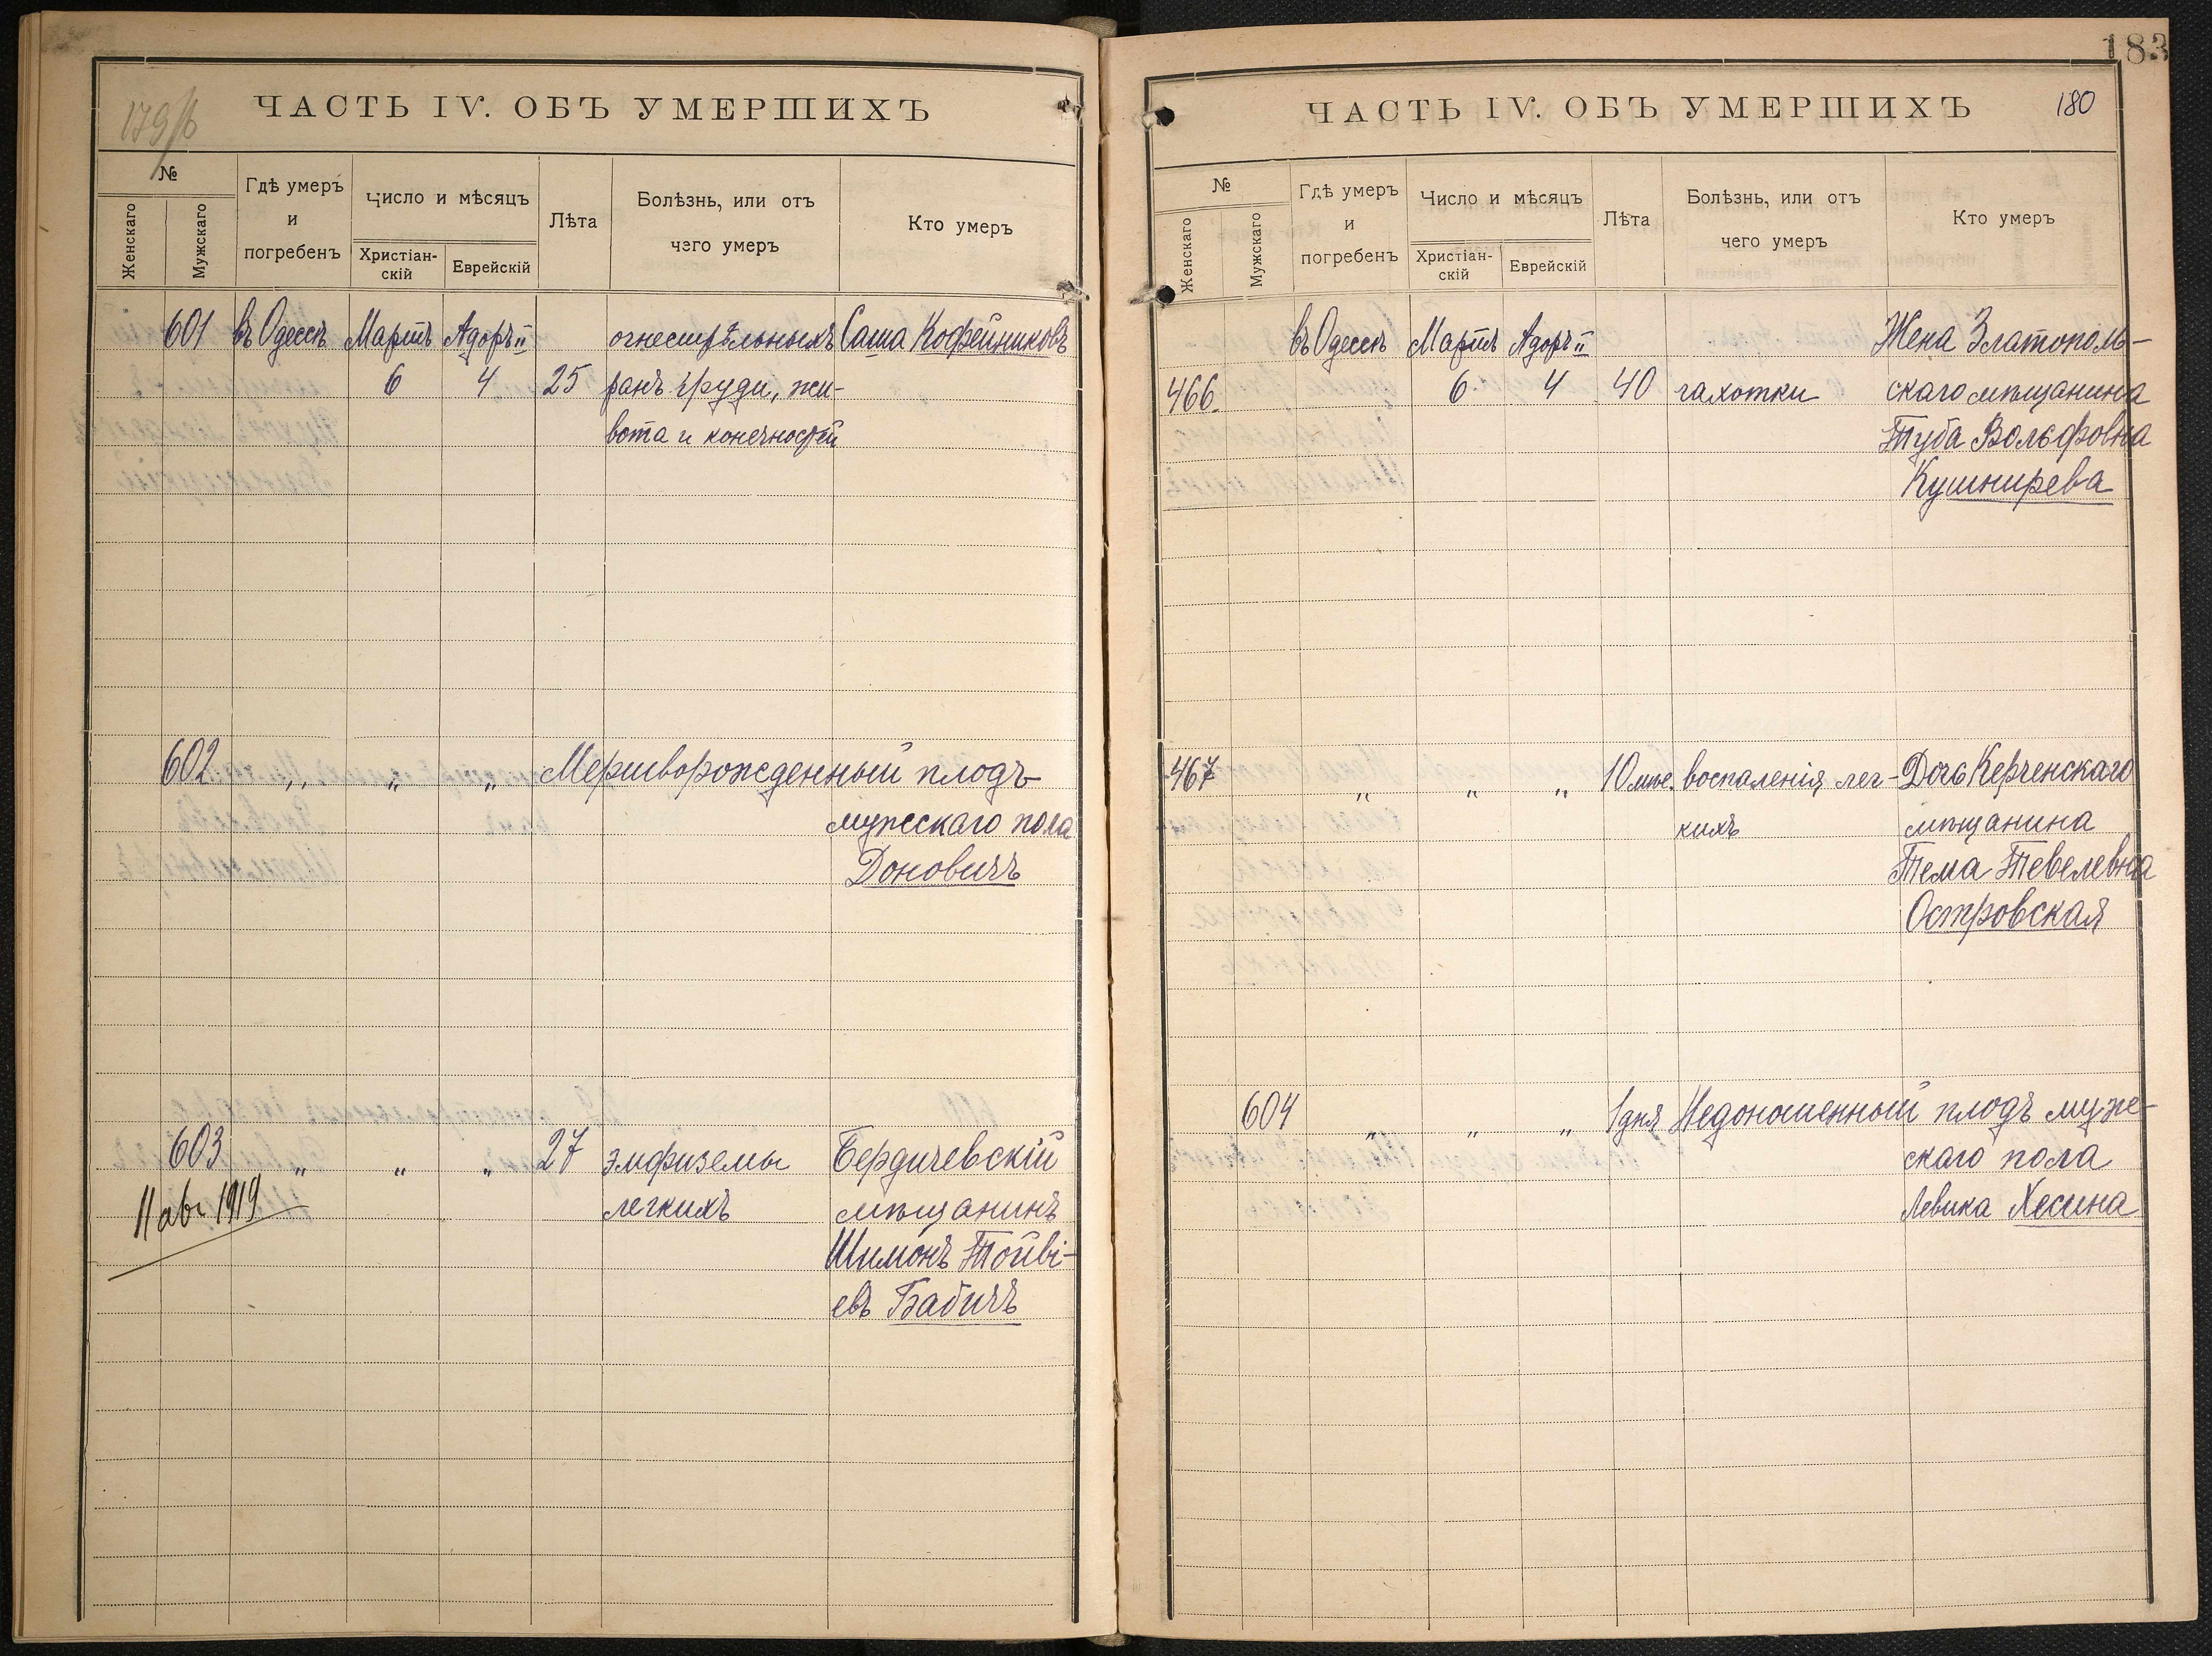 179/б
ЧАСТЬ IV. ОБЪ УМЕРШИХЪ
№
Женскаго
Мужскаго
Гдѣ умеръ
и
погребенъ
Число и мѣсяцъ
Христіан-
скій
Еврейскій
Лѣта
Болѣзнь, или отъ
чего умеръ
Кто умеръ
601 въ Одессѣ Мартъ Адаръ II огнестрѣльныхъ Саша Кофейниковъ
6 4 25 ранъ груди, жи-
вота и конечностей
602 „ „ „ Мертворожденный плодъ
мужескаго пола
Доновичъ
603 „ „ „ 27 эмфиземы Бердичевскій
11 авг 1919 легкихъ мѣщанинъ
Шимонъ Тойві-
евъ Бабичъ
183
ЧАСТЬ IV. ОБЪ УМЕРШИХЪ 180
№
Женскаго
Мужскаго
Гдѣ умеръ
и
погребенъ
Число и мѣсяцъ
Христіан-
скій
Еврейскій
Лѣта
Болѣзнь, или отъ
чего умеръ
Кто умеръ
въ Одессѣ Мартъ Адаръ II Жена Златополь-
466. 6 4 40 чахотки скаго мѣщанина
Туба Вольфовна
Кушнирева
467 „ „ „ 10 мѣс. воспаленія лег- Дочь Керченскаго
кихъ мѣщанина
Тема Тевелевна
Островская
604 „ „ „ 1 дня Недоношенный плодъ муже-
скаго пола
Левика Хесина